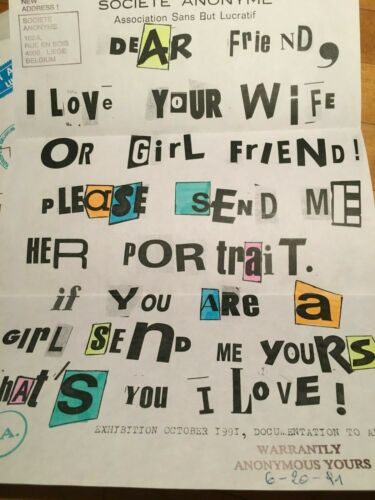 NEW
ADDRESS !
SOCIETE ANONYME
Association Sans But Lucratif
SOCIETE
ANONYME
RUE EN BOIS
4000 - LIEGE
BELGIUM
DEAR FriEND,
I LovE YOUR WiFE
OR GirL FRIEND!
PLEaSE SEND ME
HER PORtraiT.
if YOU ARE a
GIRL SEND ME YOURS
hAt'S YOU I LOVE!
A.
EXHIBITION OCTOBER 1991, DOCUMENTATION TO A
WARRANTLY
ANONYMOUS YOURS
6-20-91